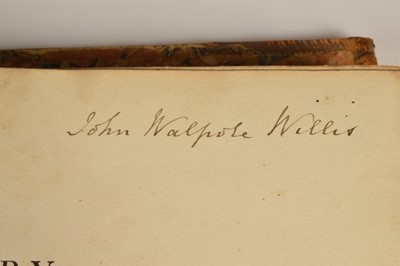 John Walpole Willis